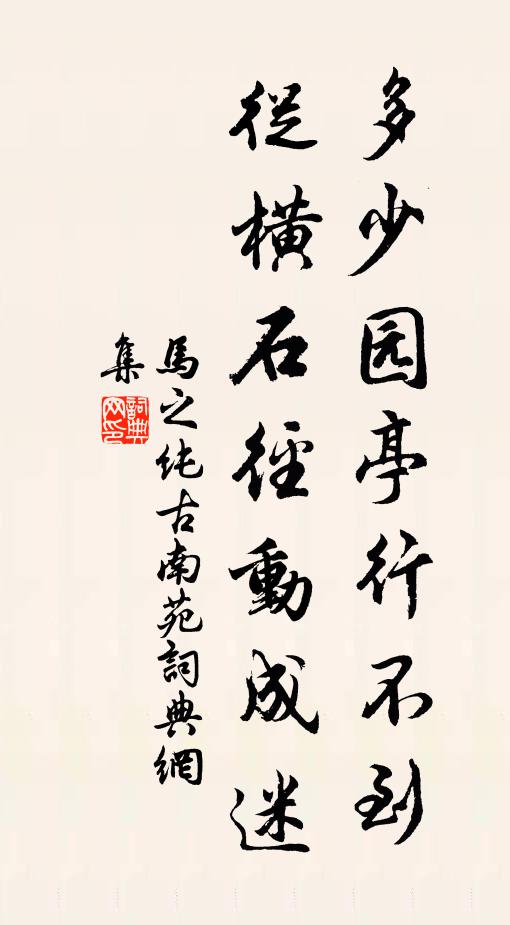 多少园亭行不到
從橫石徑動成迷
馬之純古南苑詞典網
集
詞典网印